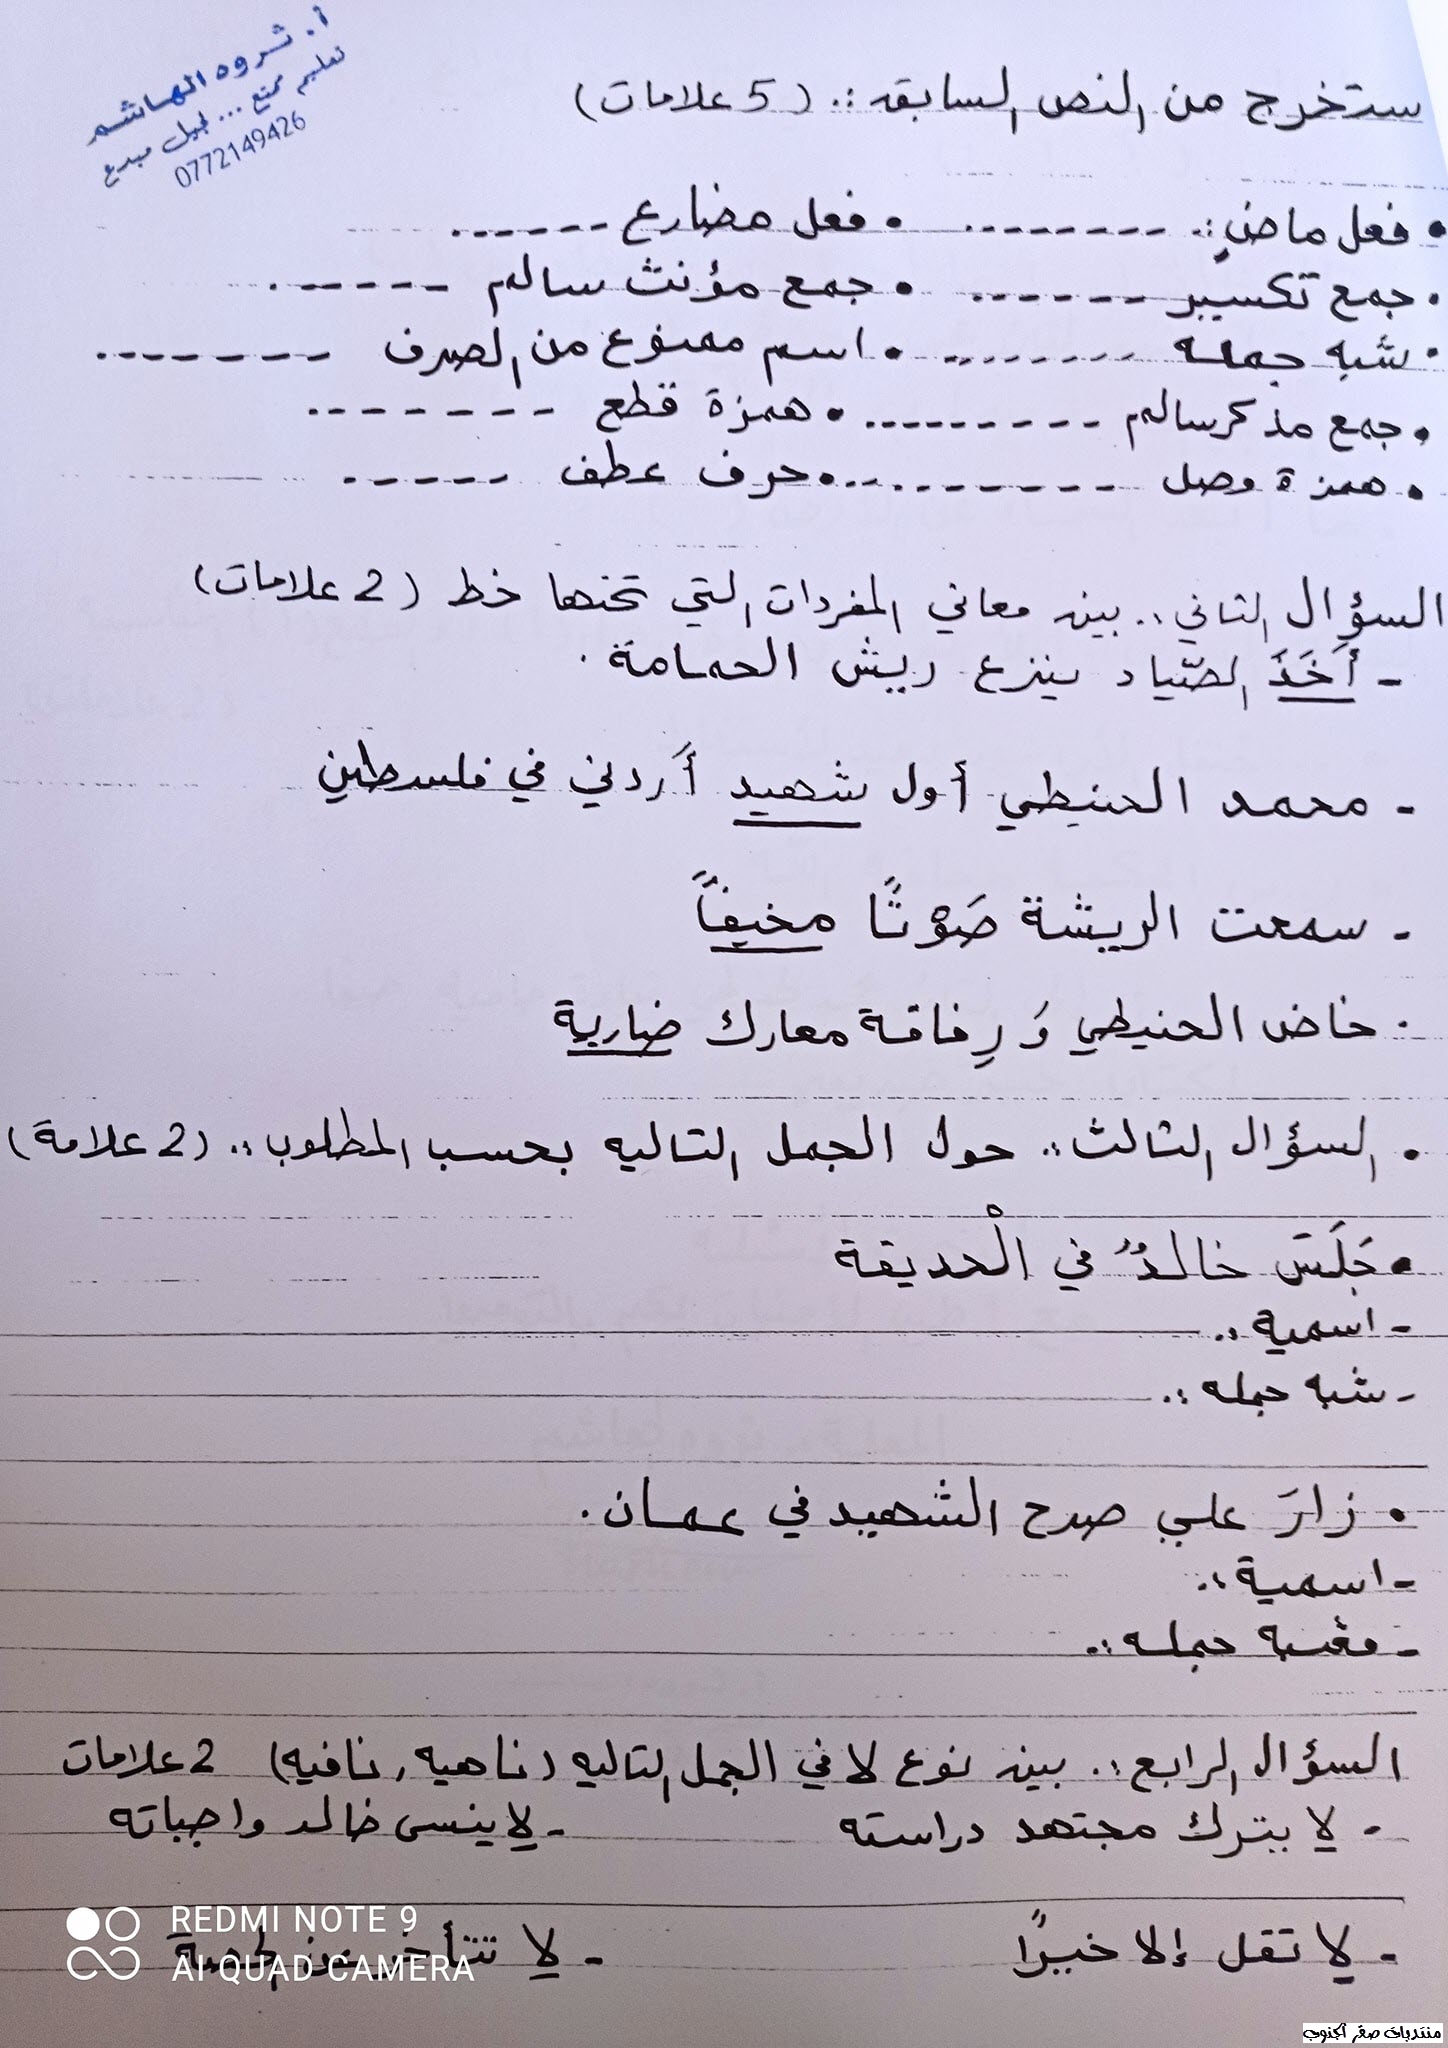 أ. ثروه الهاشم
تعليم ممتع ... لجيل مبدع
0772149426
ستخرج من النص السابقه :. (5 علامات)
• فعل ماضٍ :. --------- • فعل مضارع ------
• جمع تكسير ------ • جمع مؤنث سالم ------
• شبه جمله -------- • اسم ممنوع من الصرف -------
• جمع مذكر سالم --------- • همزة قطع -------
• همزة وصل --------- • حرف عطف -----
السؤال الثاني :. بين معاني المفردات التي تحتها خط (2 علامات)
- أَخَذَ الصّياد ينزع ريش الحمامة .
- محمد الحنيطي أول شهيد أَردني في فلسطين
- سمعت الريشة صَوْتًا مخيفًا
- خاض الحنيطي وَ رِفاقة معارك ضارية
• السؤال الثالث :. حول الجمل التاليه بحسب المطلوب :. (2 علامة)
• جَلَسَ خالدٌ في الْحديقة
- اسمية :.
- شبه جمله :.
• زارَ علي صرح الشهيد في عمان .
- اسمية :.
- شبه جمله :.
السؤال الرابع :. بين نوع لا في الجمل التاليه (ناهيه ، نافيه) 2 علامات
- لا يترك مجتهد دراسته - لا ينسى خالد واجباته
- لا تقل إلا خيرًا - لا تتأخر عن
REDMI NOTE 9
AI QUAD CAMERA
منتديات صقر الجنوب